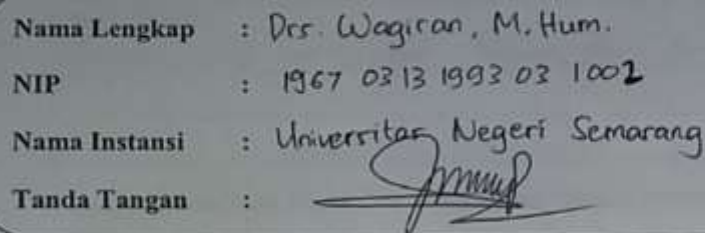 Nama Lengkap : Drs. Wagiran, M.Hum.
NIP : 1967 0313 1993 03 1002
Nama Instansi : Universitas Negeri Semarang
Tanda Tangan :